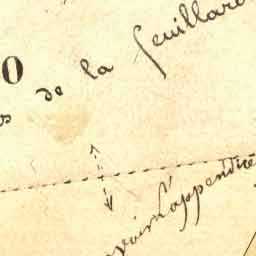 O
s de la feuillard
avoir l'appendice